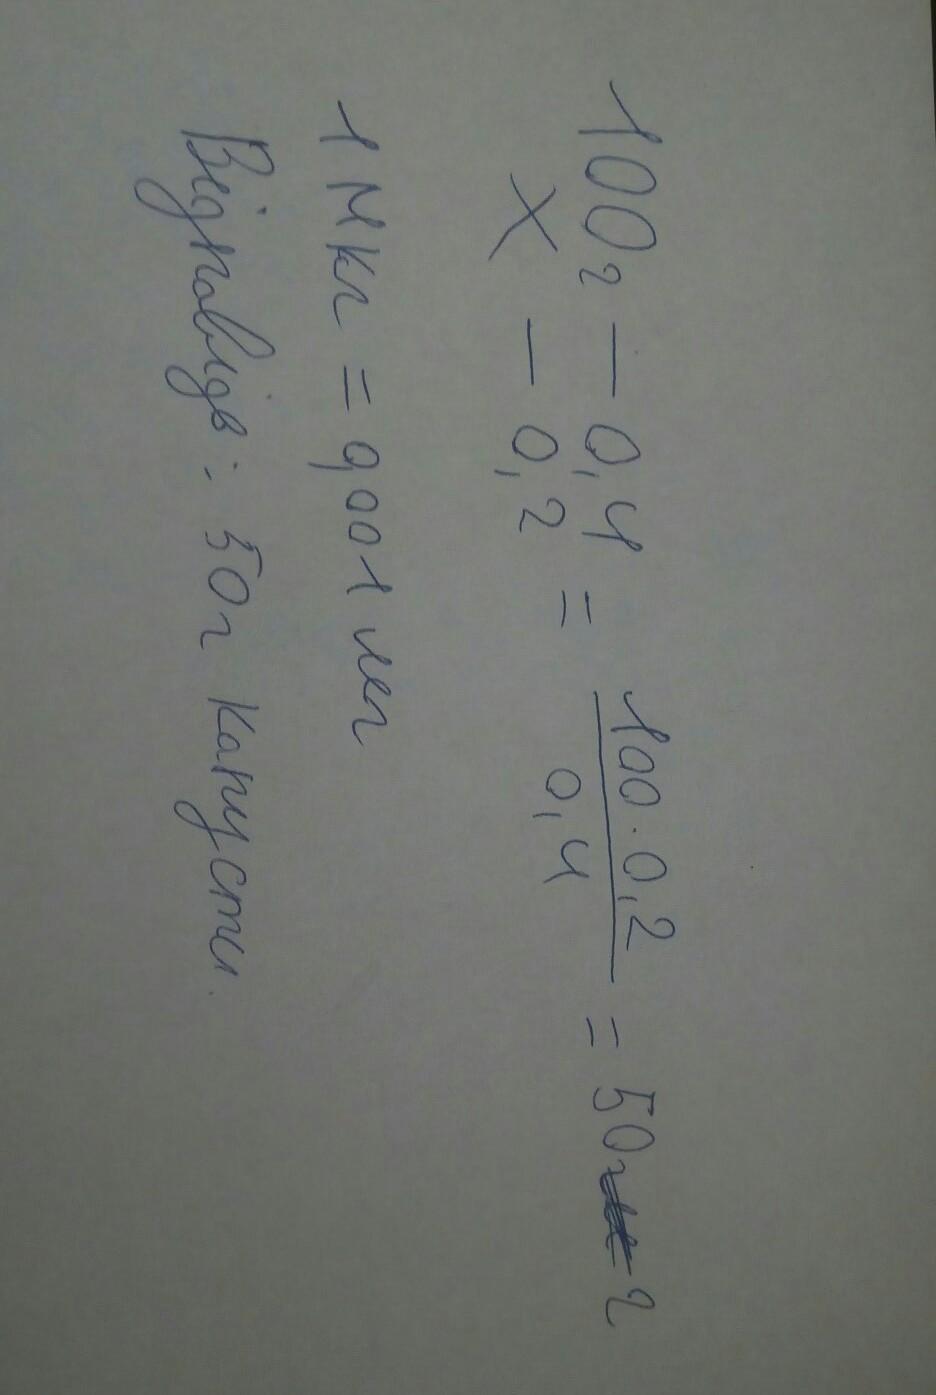 100г — 0,4 = 100 · 0,2 / 0,4 = 50г
X — 0,2
1 мкг = 0,001 мг
Відповідь: 50г капусти.